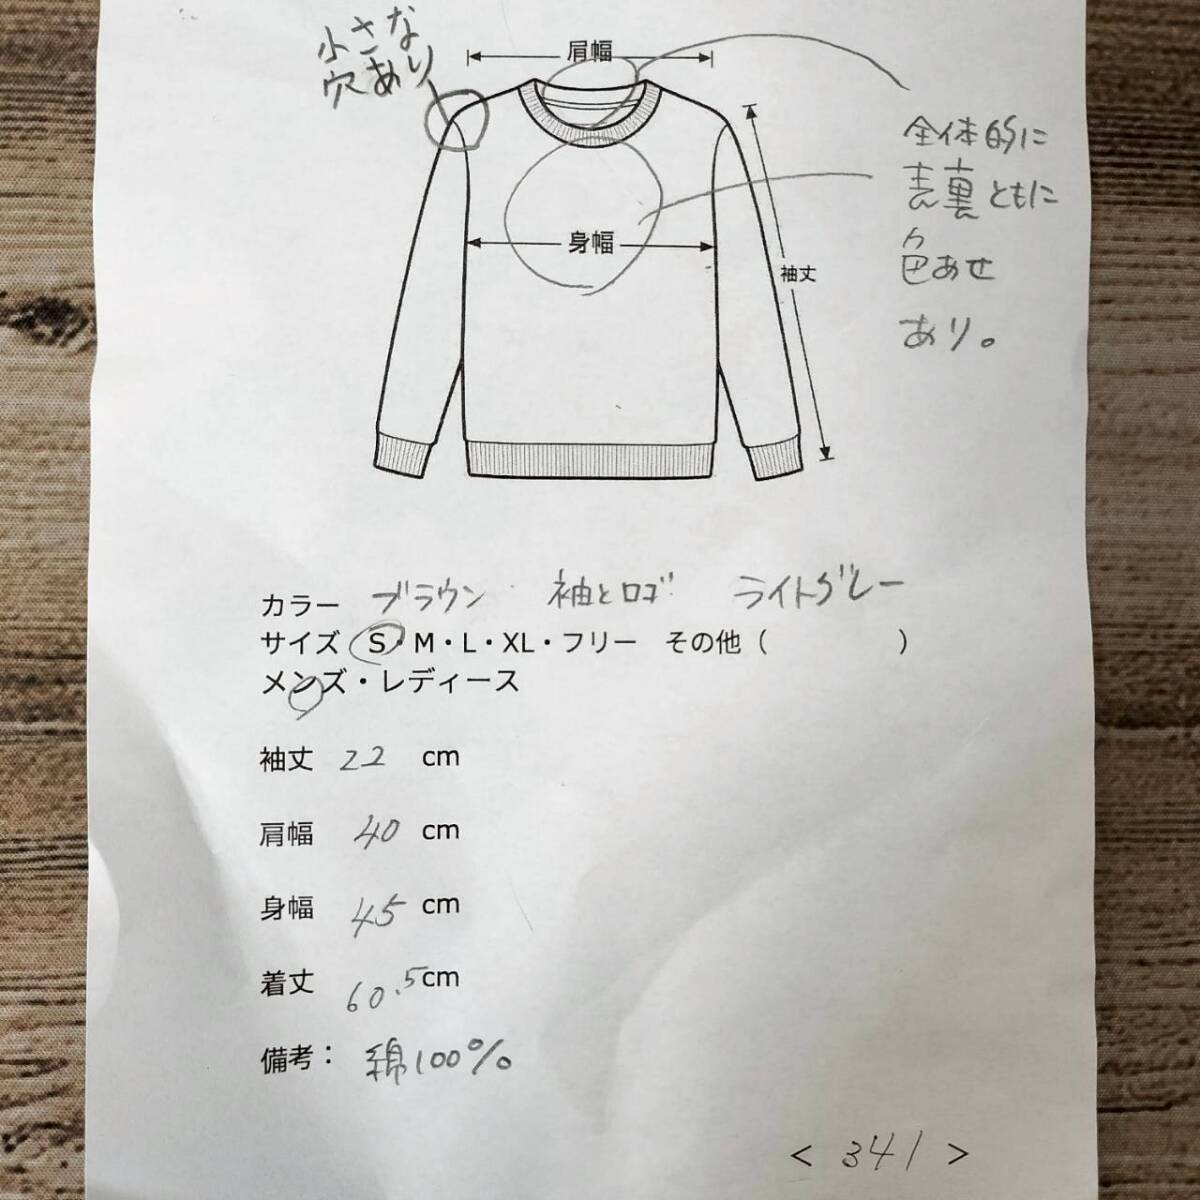 小さな
穴あり
肩幅
全体的に
表裏ともに
色あせ
あり。
身幅
袖丈
カラー ブラウン 袖とロゴ ライトグレー
サイズ S・M・L・XL・フリー その他（ ）
メンズ・レディース
袖丈 22 cm
肩幅 40 cm
身幅 45 cm
着丈 60.5 cm
備考： 綿100%
< 341 >